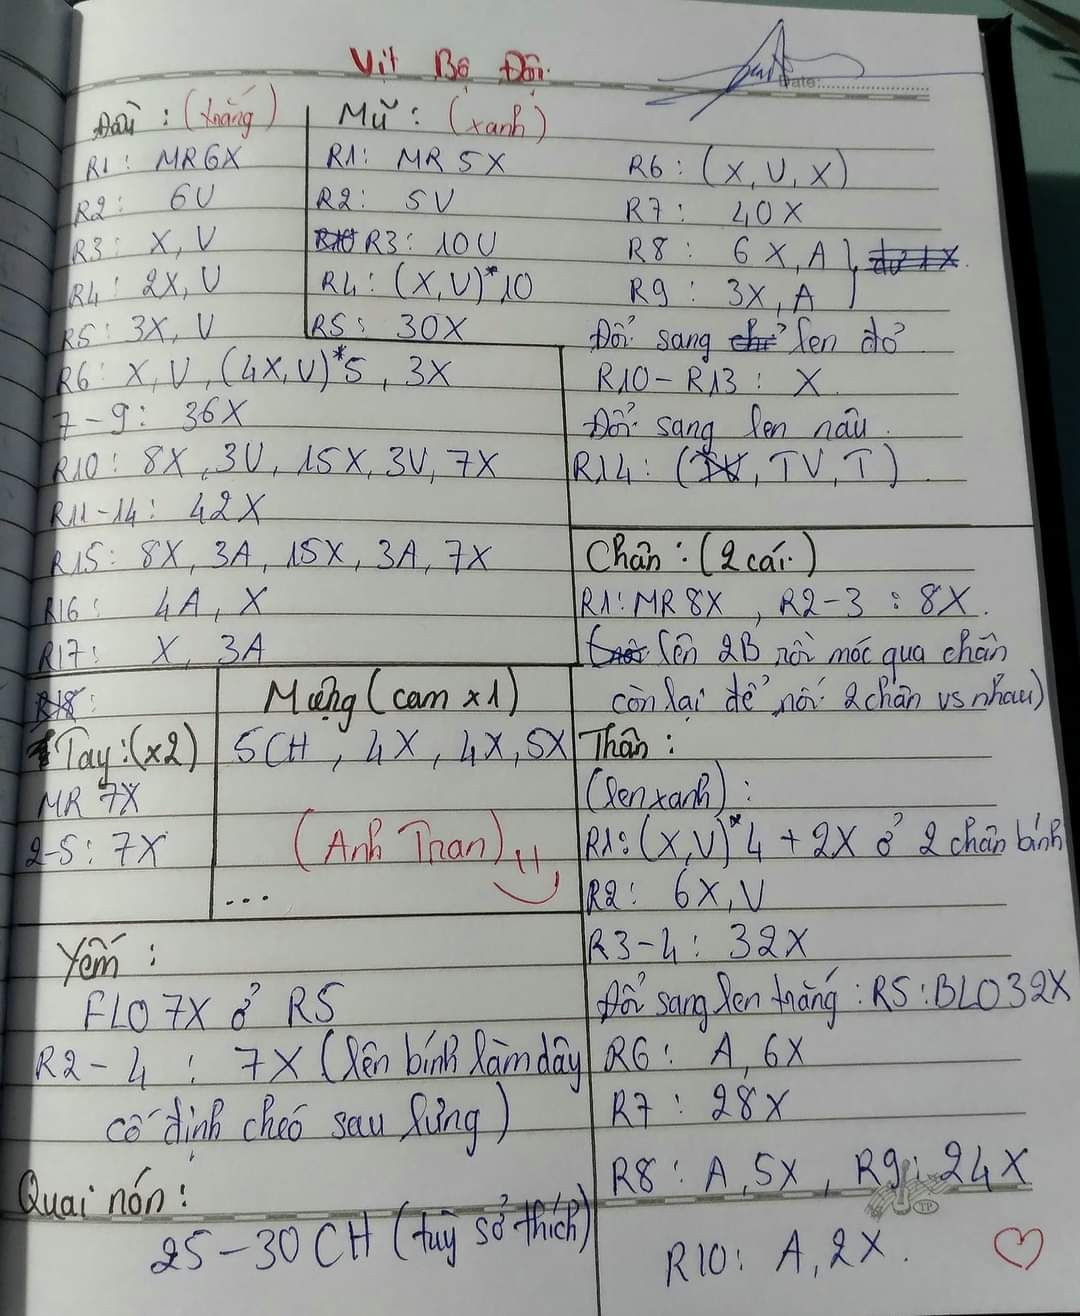 Vịt Bộ Đội
Date:
Đầu : (trắng)
R1 : MR 6X
R2 : 6V
R3 : X, V
R4 : 2X, V
R5 : 3X, V
R6 : X, V, (4X, V)*5, 3X
7 - 9 : 36X
R10 : 8X, 3V, 15X, 3V, 7X
R11 - 14 : 42X
R15 : 8X, 3A, 15X, 3A, 7X
R16 : 4A, X
R17 : X, 3A
R18 :
Mũ : (xanh)
R1 : MR 5X
R2 : 5V
R3 : 10V
R4 : (X, V)*10
R5 : 30X
R6 : (X, V, X)
R7 : 40X
R8 : 6X, A
R9 : 3X, A
Đổi sang len đỏ
R10 - R13 : X
Đổi sang len nâu.
R14 : (TV, TV, T)
Tay : (x2)
MR 7X
2-5 : 7X
Mỏ̉ng (cam x1)
5CH, 4X, 4X, 5X
(Anh Tran)
...
Chân : (2 cái)
R1 : MR 8X, R2-3 : 8X.
lên 2B rồi móc qua chân
còn lại để nối 2 chân vs nhau)
Thân :
(len xanh) :
R1 : (X, V)*4 + 2X ở 2 chân bính
R2 : 6X, V
R3 - 4 : 32X
Đổi sang len trắng : R5 : BLO 32X
R6 : A, 6X
R7 : 28X
R8 : A, 5X, R9 : 24X
R10 : A, 2X.
Yếm :
FLO 7X ở R5
R2 - 4 : 7X (lên bính làm dây
cố định chéo sau lưng)
Quai nón :
25 - 30 CH (tuỳ sở thích)
TP